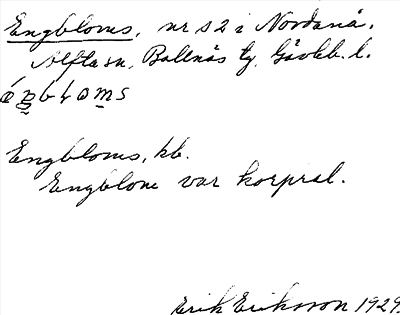 Engbloms, nr s2 i Nordanå.
Alfta sn, Bollnäs tg, Gävleb. l.
Engbloms, kb.
Engblom var korpral.
Erik Eriksson 1929.